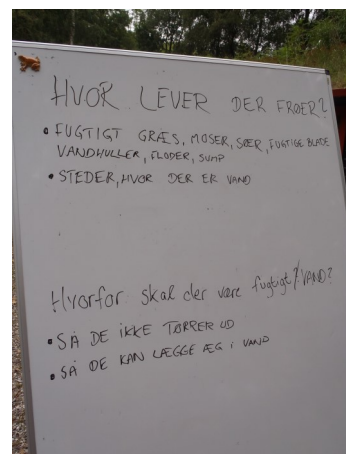 HVOR LEVER DER FRØER?
• FUGTIGT GRÆS, MOSER, SØER, FUGTIGE BLADE
VANDHULLER, FLODER, SUMP
• STEDER, HVOR DER ER VAND
Hvorfor skal der være fugtigt?/VAND?
• SÅ DE IKKE TØRRER UD
• SÅ DE KAN LÆGGE ÆG I VAND